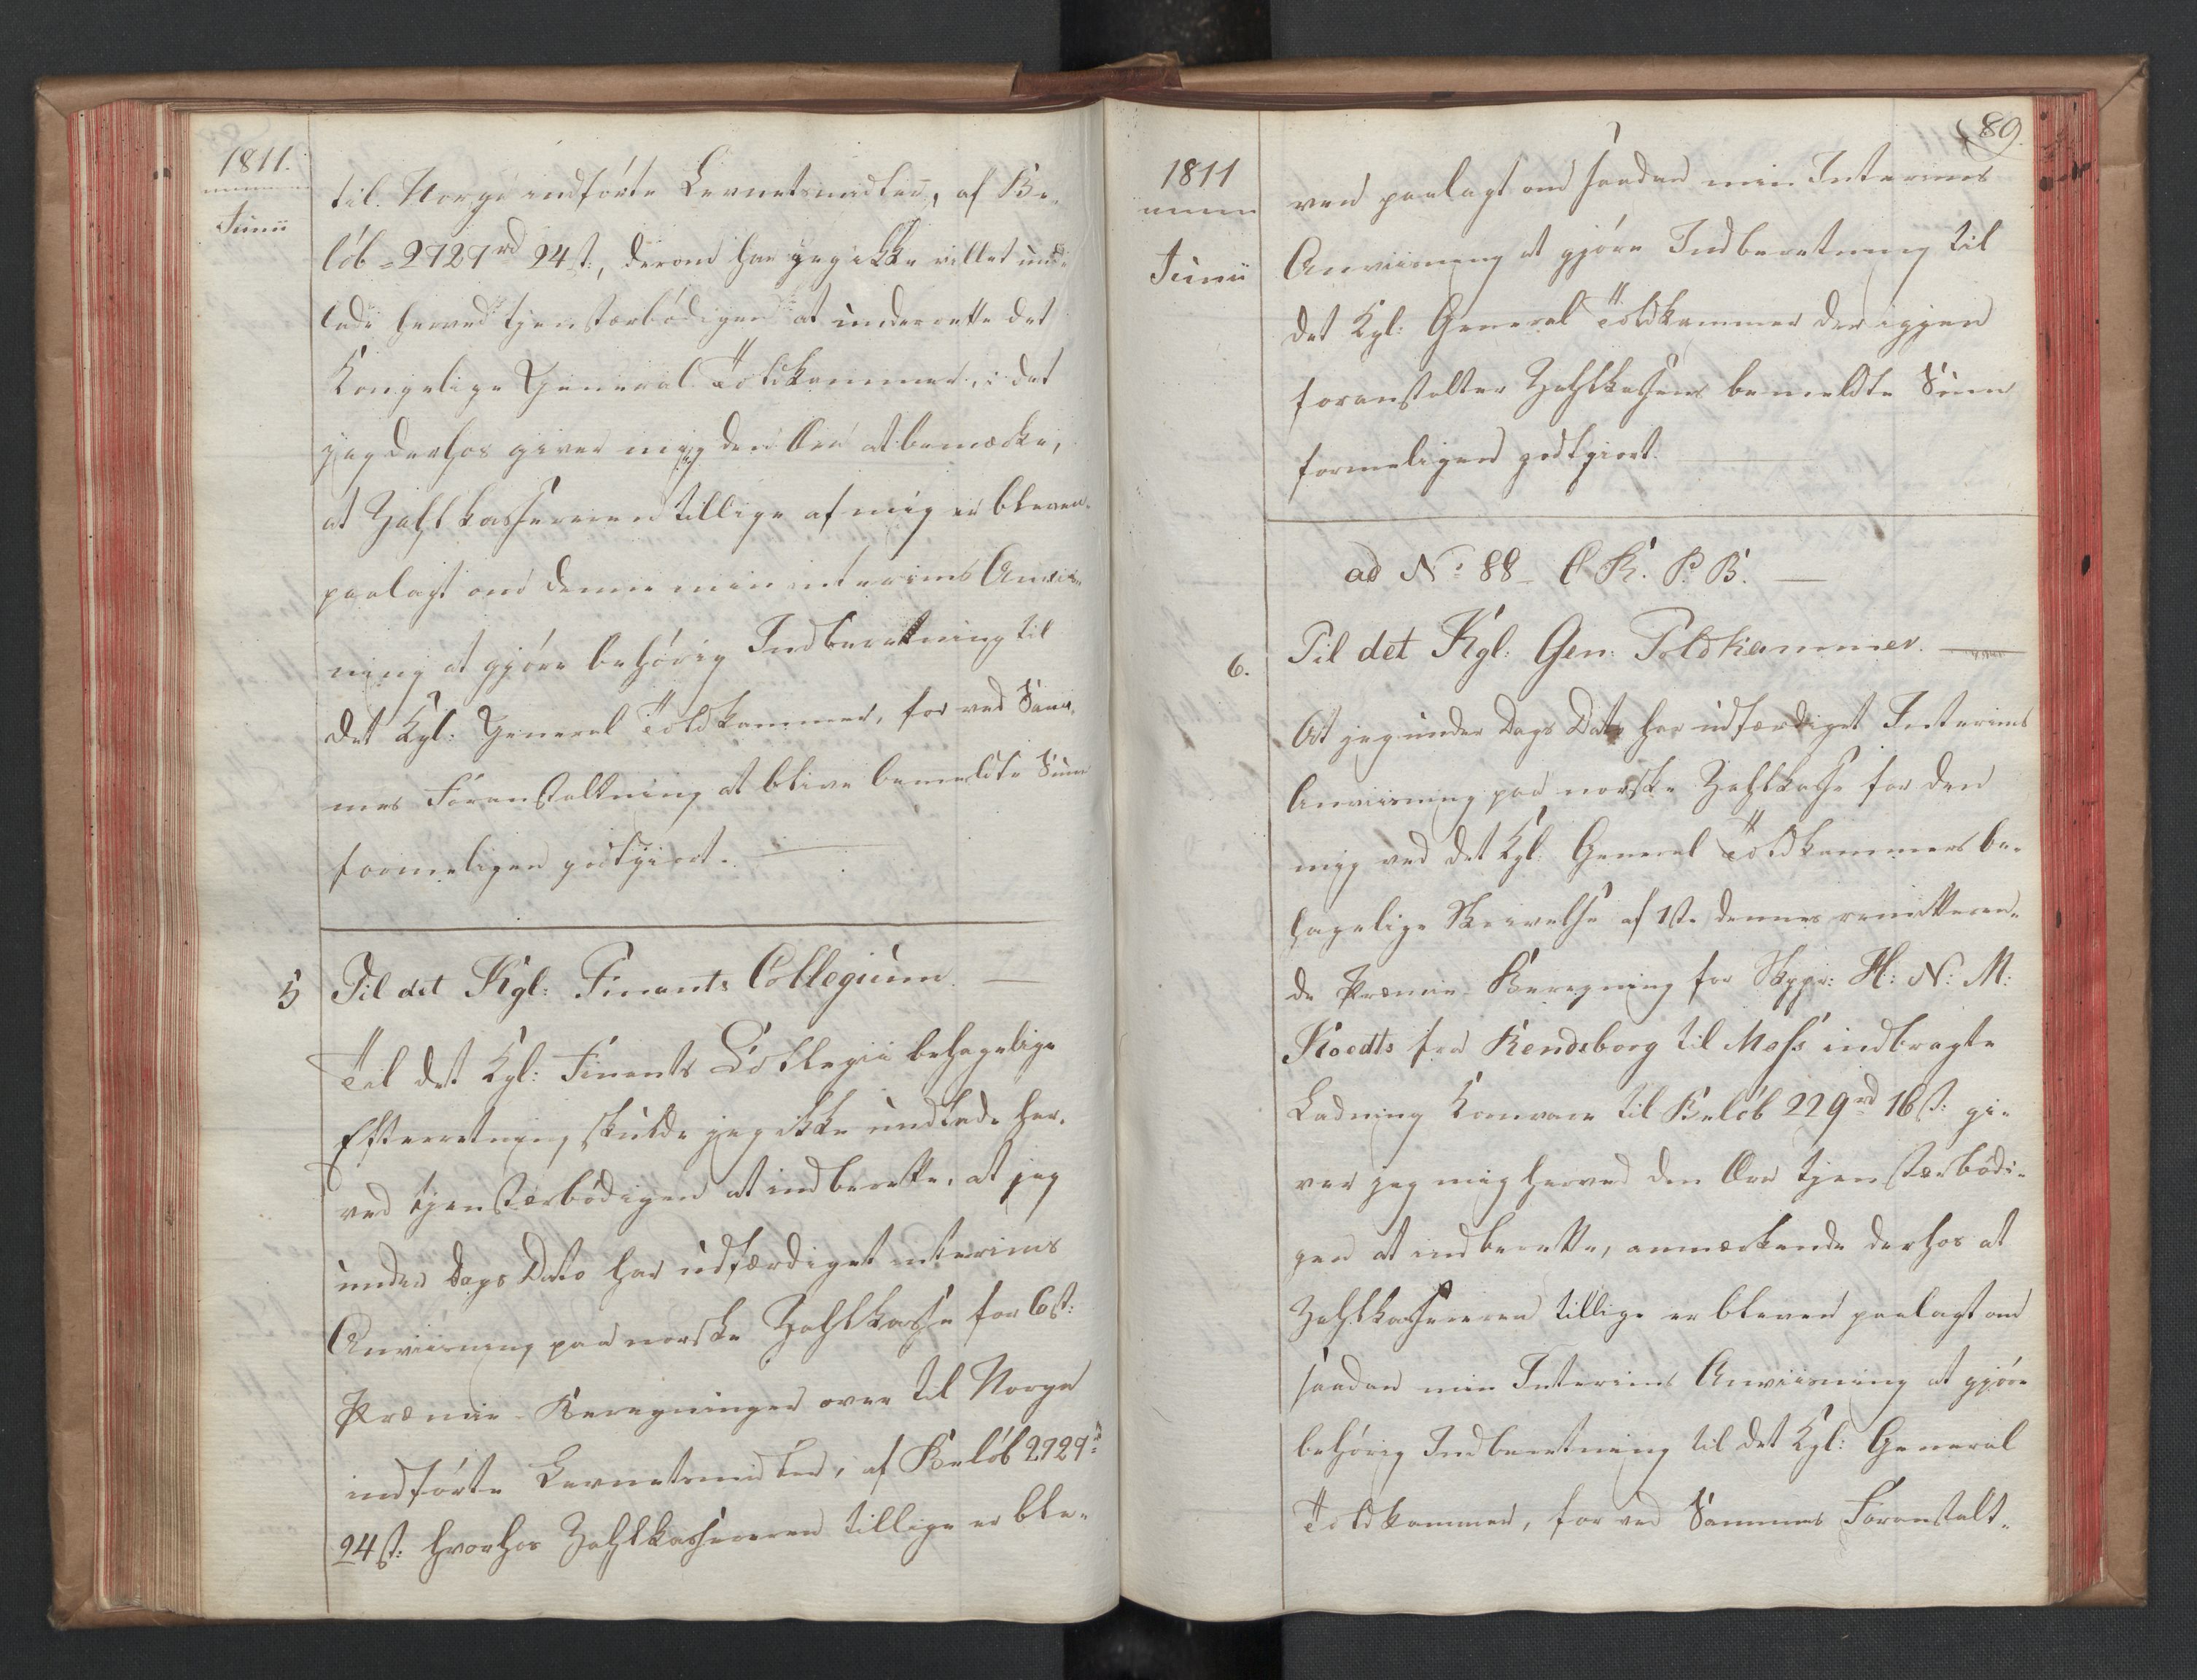 1811.
Junii
til Norge indförte Levnetsmidler, af Be-
löb = 2727 rd 24 s:, derom har jeg ikke villet und-
lade herved tjenstærbödigen at underrette det
Kongelige General Toldkammer, i det
jeg derhos giver mig den Ære at bemærke,
at Zahlkasserereren tillige af mig er bleven
paalagt om denne min interims Anvis-
ning at gjöre behörig Indberetning til
det Kgl: General Toldkammer, for ved Sam-
mes Foranstaltning at blive bemeldte Sum
formeligen godtgjort.
5 Til det Kgl: Finants Collegium.
Til det Kgl: Finants Collegii behagelige
Efterretning, skulde jeg ikke undlade her-
ved tjenstærbödigen at indberette, at jeg
under Dags Dato har udfærdiget interims
Anviisning paa norske Zahlkasse for 6 st:
Præmie-Beregninger over til Norge
indförte Levnetsmidler, af Belöb 2727 rd
24 s: hvorhos Zahlkassereren tillige er ble-
89.
1811
Junii
ven paalagt om saadan min Interims
Anviisning at gjöre Indberetning til
det Kgl: General Toldkammer der igjen
foranstalter Zahlkassens bemeldte Sum
formeligen godtgjort.
ad No: 88 - C. K. P. B.
6. Til det Kgl: Gen: Toldkammer.
At jeg under Dags Dato har udfærdiget Interims
Anviisning paa norske Zahlkasse for den
mig ved det Kgl: General Toldkammers be-
hagelige Skrivelse af 1ste dennes remitteren-
de Præmie-Beregning for Skipr: H: N: M:
Koedts fra Rendsborg til Moss indbragte
Ladning Kornvare til Belöb 229 rd 16 s: gi-
ver jeg mig herved den Ære tjenstærbödi-
gen at indberette, anmærkende derhos at
Zahlkassereren tillige er bleven paalagt om
saadan min Interims Anviisning at gjöre
behörig Indberetning til det Kgl: General
Toldkammer, for ved Sammes Foranstalt-